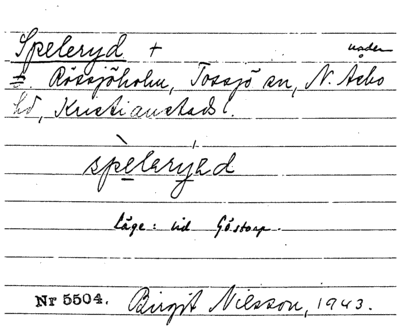 Speleryd +
under
t. Rössjöholm, Tossjö sn, N. Åsbo
hd, Kristianstads l.
spèlerýəd
Läge: vid Göstorp.
Nr 5504. Birgit Nilsson, 1943.